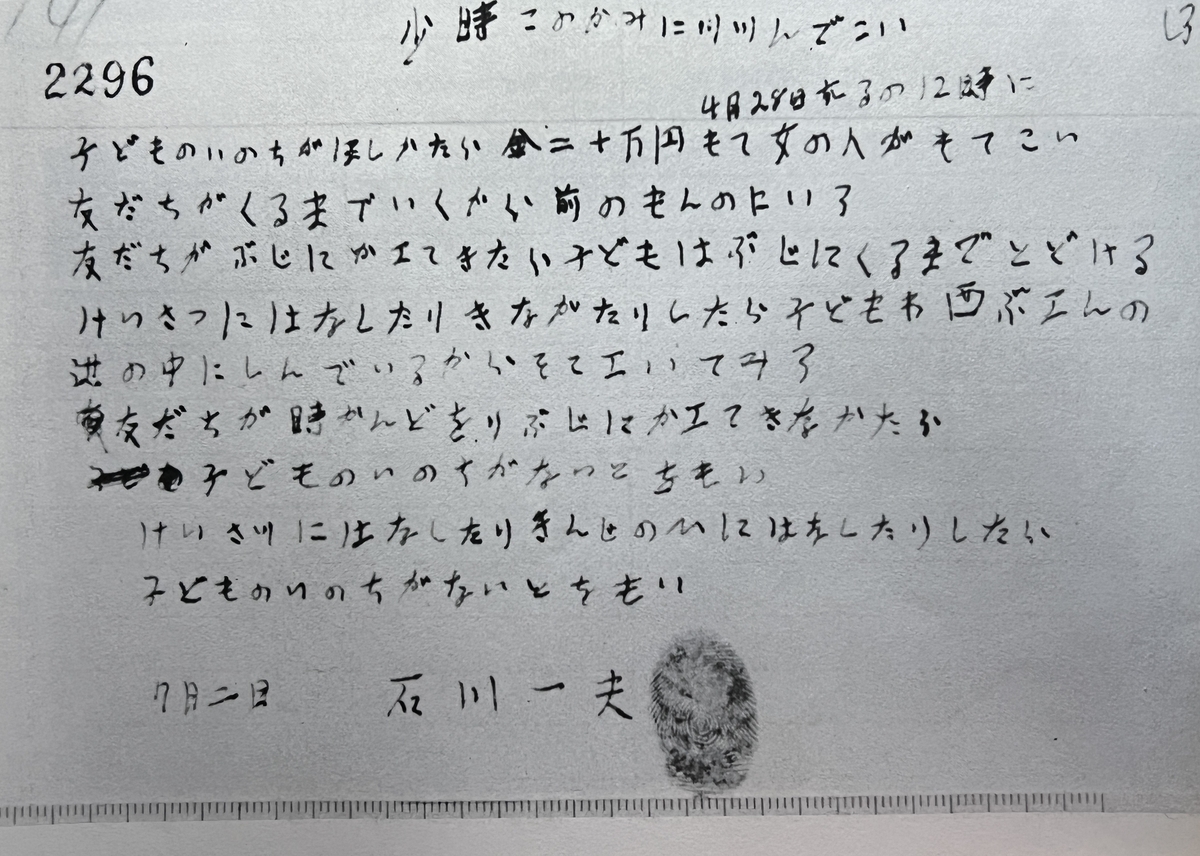 少時このかみに川川んでこい
2296
4月28日布るの12時に
子どものいのちがほしかたら金二十万円もて女の人がもてこい
友だちがくるまでいくから前のもんのにいろ
友だちがぶじにかエてきたら子どもはぶじにくるまでとどける
けいさつにはなしたりきながたりしたら子どもわ西ぶエんの
の中にしんでいるからそてエいてみろ
友だちが時かんどをりぶじにかエてきなかたら
子どものいのちがないとをもい
けいさ川にはなしたりきんじの人にはなしたりしたら
子どものいのちがないとをもい
7月二日 石川一夫